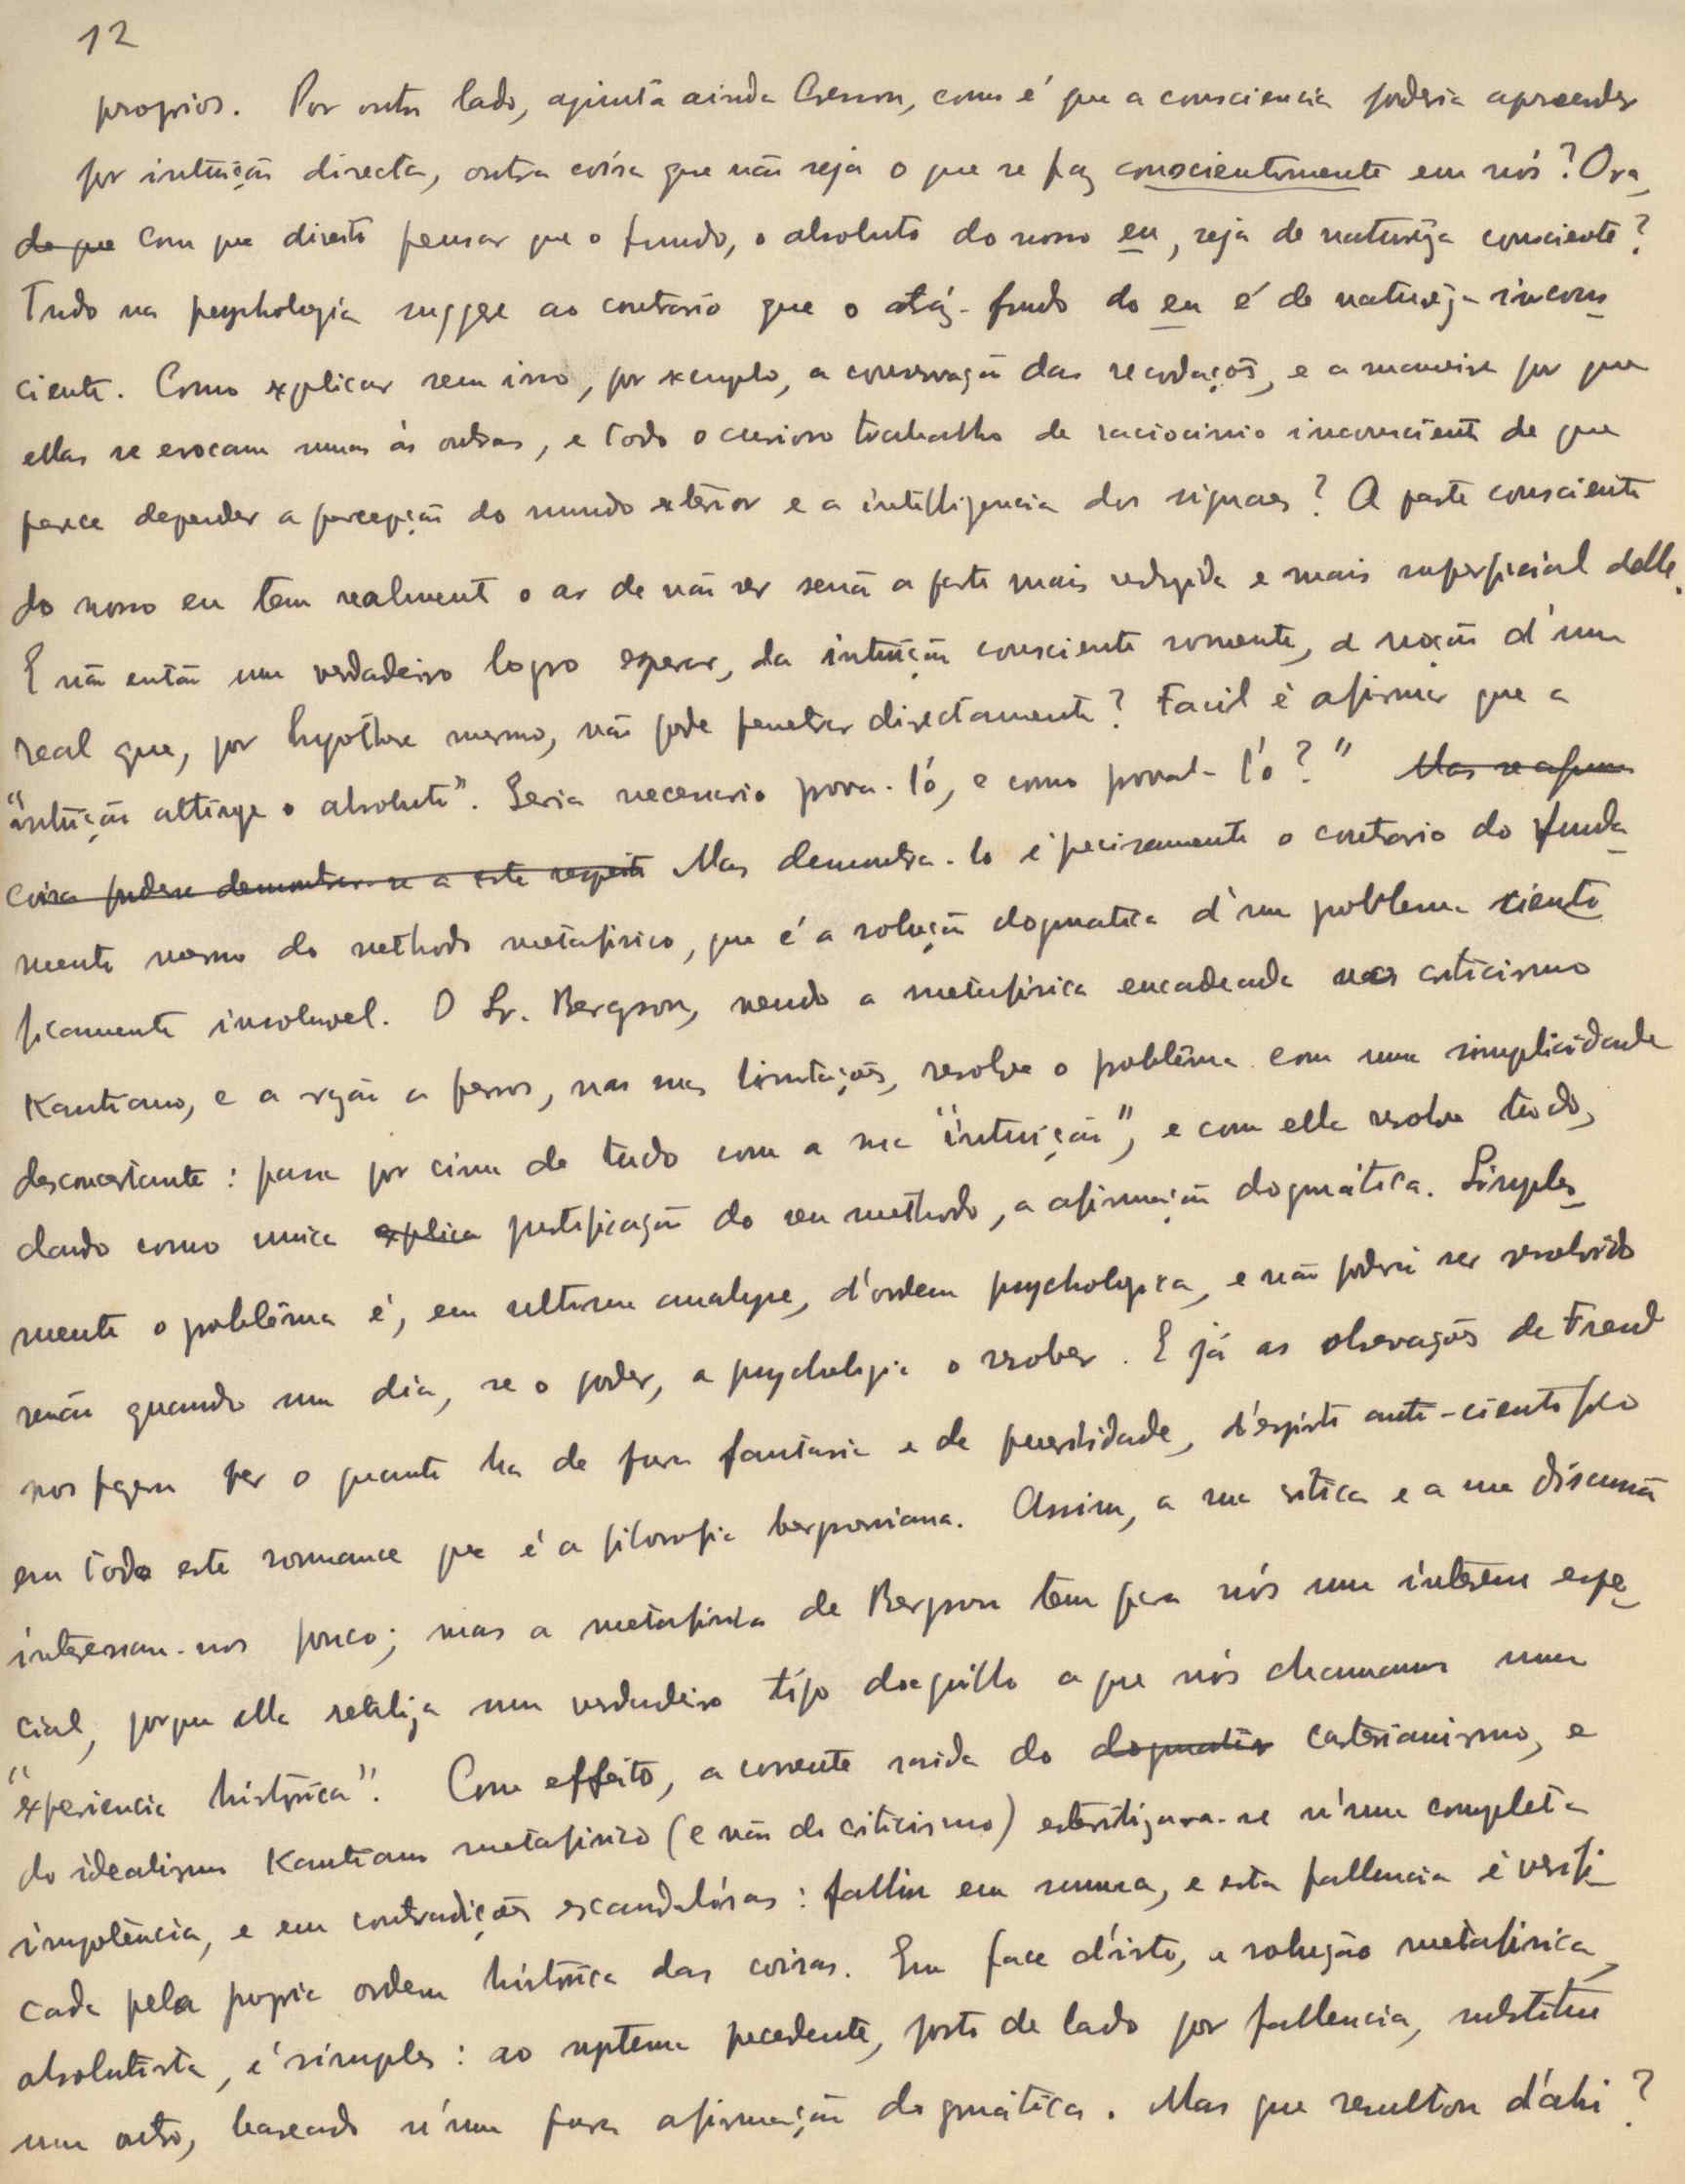 12
proprios. Por outro lado, ajunta ainda Cresson, como é que a consciencia poderia apreender
por intuição directa, outra coisa que não seja o que se faz conscientemente em nós? Ora,
de que com que direito pensar que o fundo, o absoluto do nosso eu, seja de naturêza consciente?
Tudo na psychologia suggere ao contrario que o atráz-fundo do eu é de naturêza incons
ciente. Como explicar sem isso, por exemplo, a conservação das recordações, e a maneira por que
ellas se evocam umas ás outras, e todo o curioso trabalho de raciocinio inconsciente de que
parece depender a percepção do mundo exterior e a intelligencia dos signaes? A parte consciente
do nosso eu tem realmente o ar de não ser senão a parte mais reduzida e mais superficial delle.
E não então um verdadeiro logro esperar, da intuição consciente somente, a noção d'um
real que, por hypothese mesmo, não pode penetrar directamente? Facil é afirmar que a
"intuição attinge o absoluto". Seria necessario prova-l'ó, e como proval-l'ó?" Mas
coisa pudesse demonstrar-se a este respeito Mas demonstra-lo é precisamente o contrario do funda
mento mesmo do methodo metafisico, que é a solução dogmatica d'um problema cienti
ficamente insoluvel. O Sr. Bergson, vendo a metafisica encadeada nas criticismo
Kantiano, e a razão a ferros, nas suas limitações, resolve o problêma com uma simplicidade
desconcertante: passa por cima de tudo com a sua "intuição", e com ella resolve tudo,
dando como unica explica justificação do seu methodo, a afirmação dogmática. Simples
mente o problêma é, em ultima analyse, d'ordem psychologica, e não poderá ser resolvido
senão quando um dia, se o poder, a psychologia o resolver. E já as observações de Freud
nos fazem ver o quanto ha de pura fantasia e de puerilidade, d'espirito anti-cientifico
em todo este romance que é a filosofia bergsoniana. Assim, a sua critica e a sua discussão
interessam-nos pouco; mas a metafisica de Bergson tem para nós um interesse espe
cial, porque ella realiza um verdadeiro tipo daquillo a que nós chamamos uma
"experiencia histórica". Com effeito, a corrente saida do dogmatis cartesianismo, e
do idealismo Kantiano metafisico (e não do criticismo) esterilizara-se n'uma completa
impotência, e em contradições escandalósas: fallira em summa, e esta fallencia é verifi
cada pela propria ordem histórica das coisas. Em face d'isto, a solução metafisica,
absolutista, é simples: ao systema precedente, posto de lado por fallencia, substitue
um outro, baseado n'uma pura afirmação dogmática. Mas que resultou d'ahi?